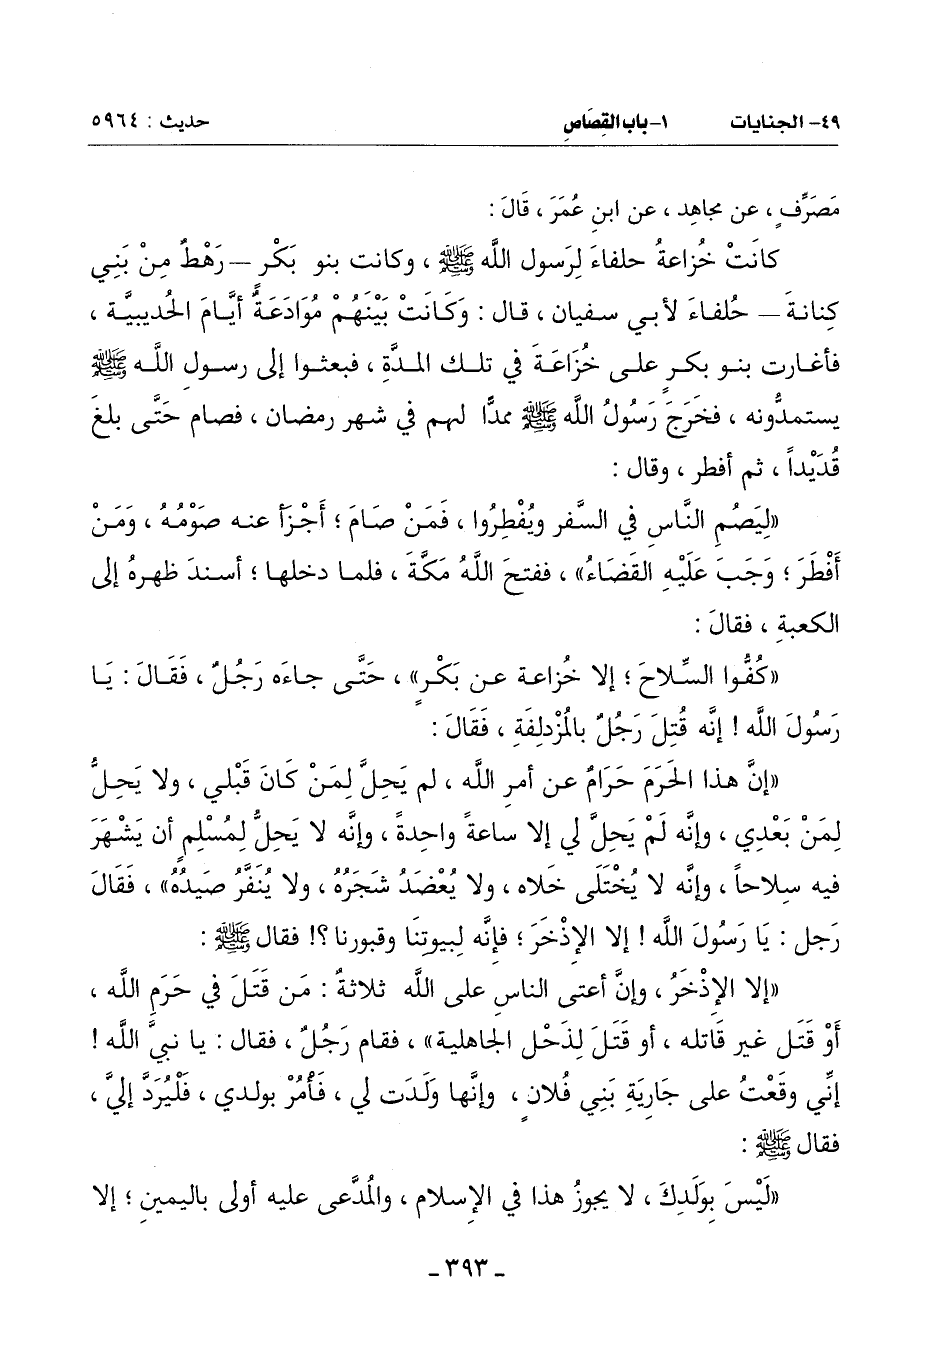 ٤٩- الجنايات ١- باب القِصَاص حديث : ٥٩٦٤
مَصَرِّفٍ ، عن مجاهِد ، عن ابنِ عُمَرَ ، قَالَ :
كانَتْ خُزاعةُ حلفاءَ لِرَسول اللَّه ﷺ ، وكانت بنو بَكْرٍ — رَهْطٌ مِنْ بَنِي
كِنانةَ — حُلفاءَ لأبي سفيان ، قال : وَكَانَتْ بَيْنَهُمْ مُوَادَعَةٌ أيَّامَ الحُديبيَّة ،
فأغارت بنو بكرٍ على خُزَاعَةَ في تلك المدَّة ، فبعثوا إلى رسولِ اللَّه ﷺ
يستمدُّونه ، فخَرَجَ رَسُولُ اللَّه ﷺ ممدًّا لهم في شهر رمضان ، فصام حَتَّى بلغَ
قُدَيْداً ، ثم أفطر ، وقال :
«لِيَصُمِ النَّاس في السَّفر ويُفْطِرُوا ، فَمَنْ صَامَ ؛ أجْزَأ عنه صَوْمُهُ ، وَمَنْ
أَفْطَرَ ؛ وَجَبَ عَلَيْهِ القَضَاءُ» ، ففتحَ اللَّهُ مَكَّةَ ، فلما دخلها ؛ أسندَ ظهرهُ إلى
الكعبةِ ، فقالَ :
«كُفُّوا السِّلاحَ ؛ إلا خُزاعة عن بَكْرٍ» ، حَتَّى جاءَه رَجُلٌ ، فَقَالَ : يَا
رَسُولَ اللَّه ! إنَّه قُتِلَ رَجُلٌ بالمُزْدلِفَةِ ، فَقَالَ :
«إنَّ هذا الحَرَمَ حَرَامٌ عن أمرِ اللَّه ، لم يَحِلَّ لِمَنْ كَانَ قَبْلي ، ولا يَحِلُّ
لِمَنْ بَعْدِي ، وإنَّه لَمْ يَحِلَّ لي إلا ساعةً واحِدةً ، وإنَّه لا يَحِلُّ لِمُسْلِمٍ أن يَشْهَرَ
فيه سِلاحاً ، وإنَّه لا يُخْتَلَى خَلاه ، ولا يُعْضَدُ شَجَرُهُ ، ولا يُنَفَّرُ صَيدُهُ» ، فَقَالَ
رَجل : يَا رَسُولَ اللَّه ! إلا الإذْخَرَ ؛ فإنَّه لِبيوتِنَا وقبورنا ؟! فقال ﷺ :
«إلا الإذْخَرُ ، وإنَّ أعتى الناسِ على اللَّه ثلاثةٌ : مَن قَتَلَ في حَرَمِ اللَّه ،
أوْ قَتَل غير قاتله ، أو قَتَلَ لِذَحْلِ الجاهلية» ، فقام رَجُلٌ ، فقال : يا نبيَّ اللَّه !
إنِّي وقَعْتُ على جَارِيَةِ بَنِي فُلانٍ ، وإنَّها وَلَدَت لي ، فَأْمُرْ بولدي ، فَلْيُرَدَّ إليَّ ،
فقال ﷺ :
«لَيْسَ بِوَلَدِكَ ، لا يجوزُ هذا في الإسلامِ ، والمُدَّعى عليه أولى باليمينِ ؛ إلا
ـ ٣٩٣ ـ